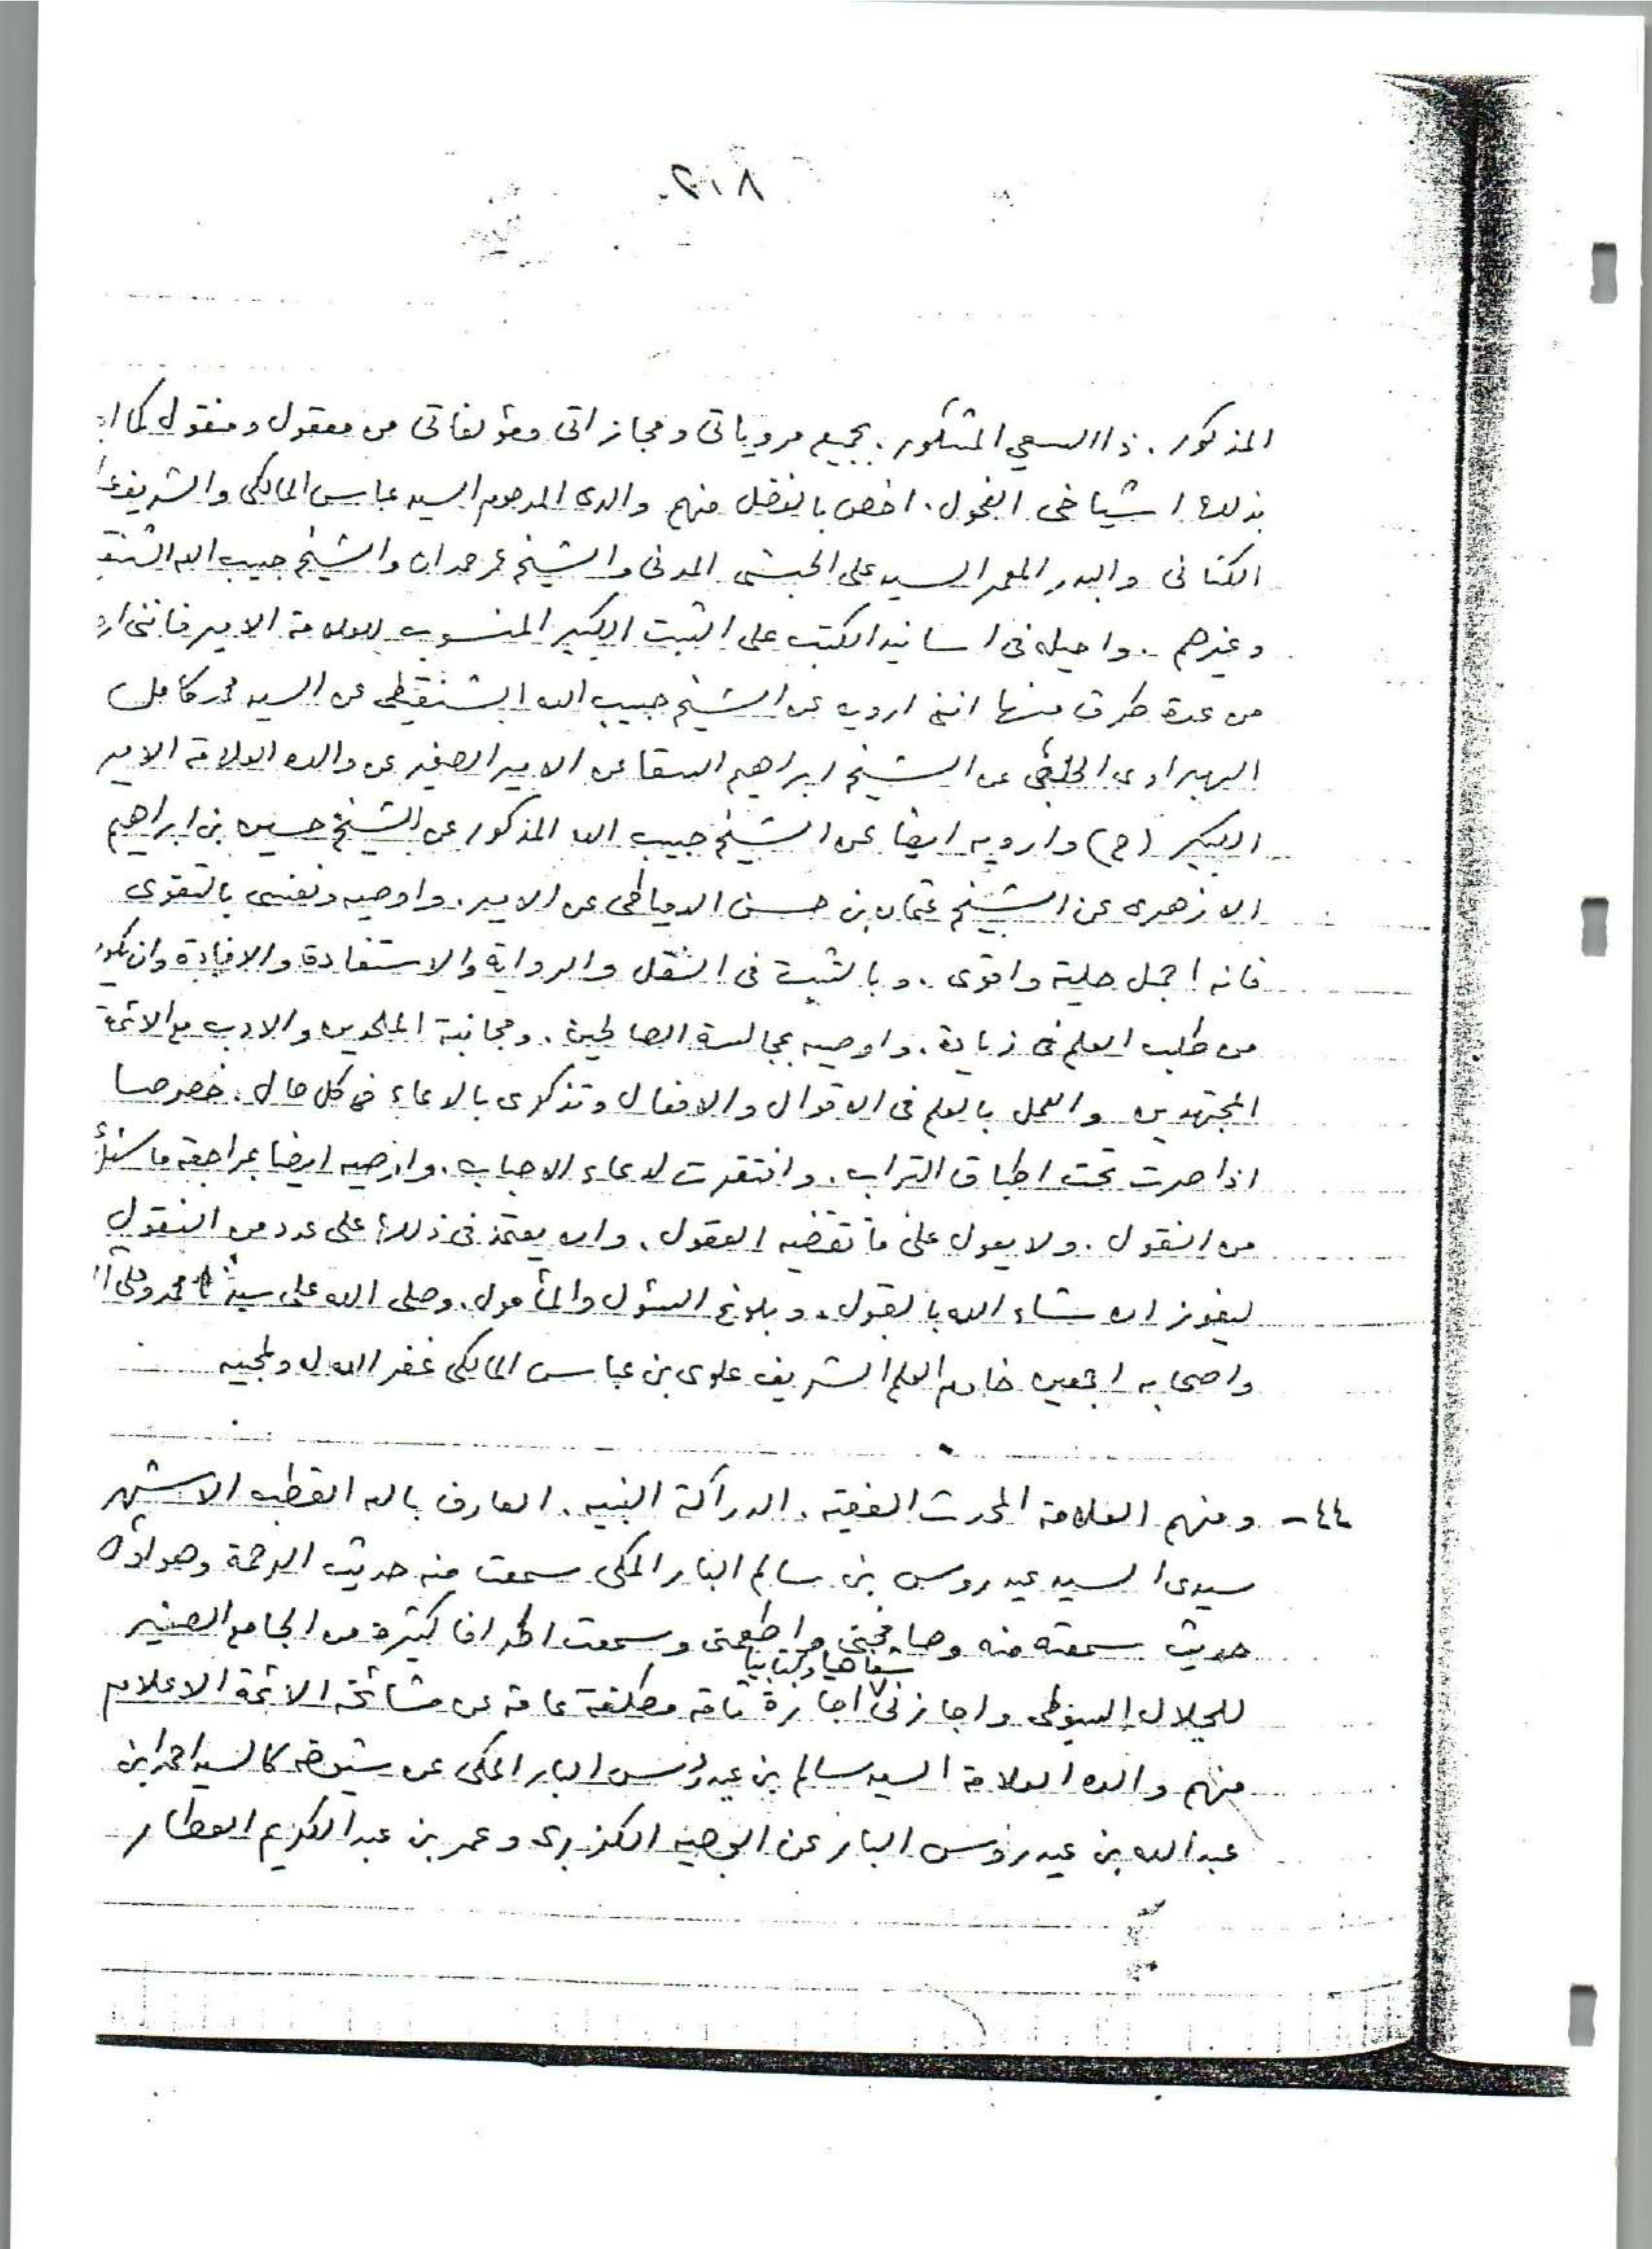 ٢٠٨
المذكور . ذا السعي المشكور . بجميع مروياتى ومجازاتى ومؤلفاتى من معقول ومنقول كما
بذلك اشياخى الفحول . اخص بالفضل منهم والدى المرحوم السيد عباس المالكى والشريف
الكتانى والبدر المعمر السيد على الحبشى المدنى والشيخ عمر حمدان والشيخ حبيب الله
وغيرهم . واحيله فى اسانيد الكتب على الثبت الكبير المنسوب للعلامة الامير فاننى
من عدة طرق منها اننى ارويه عن الشيخ حبيب الله الشنقيطى عن السيد محمد كامل
الهبراوى الحلبى عن الشيخ ابراهيم السقا عن الامير الصغير عن والده العلامة الامير
الكبير (ح) وارويه ايضا عن الشيخ حبيب الله المذكور عن الشيخ حسين بن ابراهيم
الازهرى عن الشيخ عثمان بن حسن الدمياطى عن الامير . واوصيه ونفسى بالتقوى
فانه اجمل حلية واقوى . وبالتثبت فى النقل والرواية والاستفادة والافادة وان يكون
من طلب العلم فى زيادة . واوصيه بمجالسة الصالحين . ومجانبة الملحدين والادب مع الائمة
المجتهدين والعمل بالعلم فى الاقوال والافعال وتذكرى بالدعاء فى كل حال . خصوصا
اذا صرت تحت اطباق التراب . وافتقرت لدعاء الاحباب . واوصيه ايضا بمراجعة ما
من النقول . ولا يعول على ما تقتضيه العقول . وان يعتمد فى ذلك على عدد من النقول
ليفوز ان شاء الله بالقبول . وبلوغ السئول والمأمول . وصلى الله على سيدنا محمد وعلى
واصحابه اجمعين خادم العلم الشريف علوى بن عباس المالكى غفر الله له ولمحبيه
٤٤ - ومنهم العلامة المحدث الفقيه . الدراكة النبيه . العارف بالله القطب الاشهر
سيدى السيد عيدروس بن سالم البار المكى سمعت منه حديث الرحمة وهو اول
حديث سمعته منه وصافحنى واطعمنى وسمعت اطرافا كثيرة من الجامع الصغير
شفاهيا وكتابيا
للجلال السيوطى واجازنى اجازة تامة مطلقة عامة عن مشائخه الائمة الاعلام
منهم والده العلامة السيد سالم بن عيدروس البار المكى عن شيوخه كالسيد احمد ابن
عبد الله بن عيدروس البار عن الوجيه الكزبرى وعمر بن عبد الكريم العطار